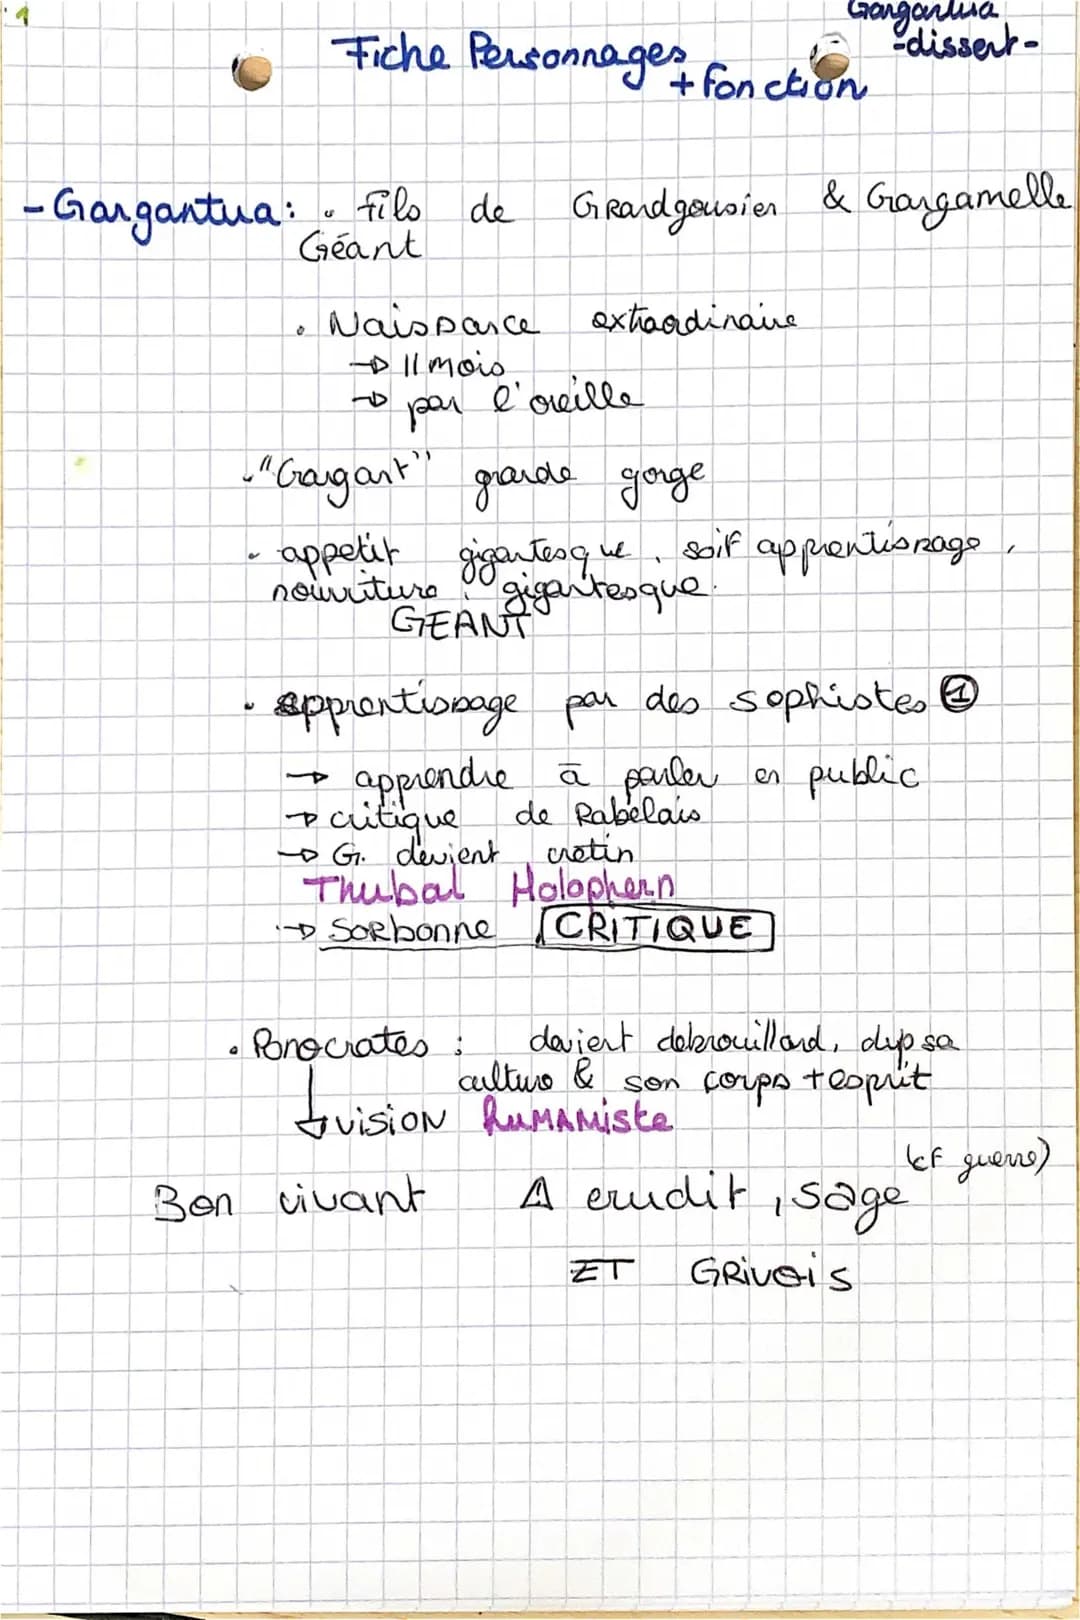 1
Gargantua
-dissert-
Fiche Personnages
+ fonction
- Gargantua: • fils de GRandgousier & Gargamelle
Géant
• Naissance extraordinaire
→ 11 mois
→ par l'oreille
• "Gargant" grande gorge
• appetit gigantesque, soif apprentissage,
nourriture gigantesque.
GEANT
• apprentissage par des sophistes ①
→ apprendre à parler en public
→ critique de Rabelais
→ G. devient cretin
Thubal Holophern
→ SORbonne CRITIQUE
• Ponocrates : devient debrouillard, dvp sa
culture & son corps + esprit
↓ vision humaniste
(cf guerre)
Bon vivant erudit, sage
ET GRivois